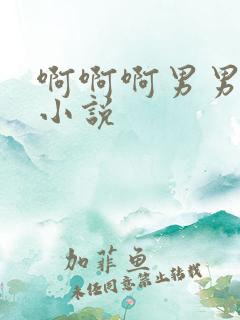 啊啊啊男男
小说
加菲鱼
未经同意禁止转载